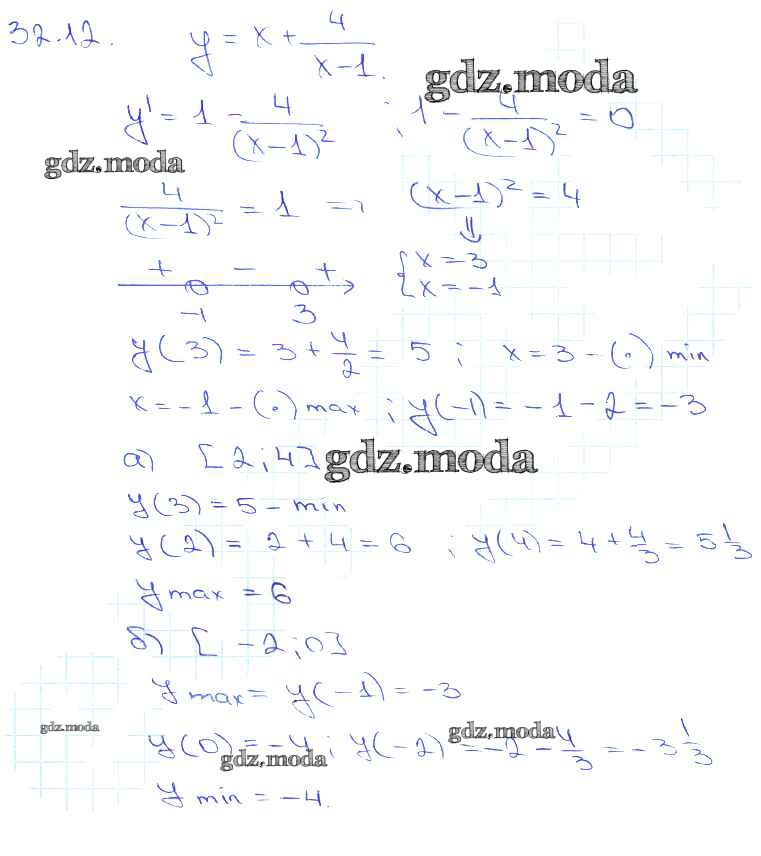 32.12. y = x + 4/(x-1).
gdz.moda
y' = 1 - 4/(x-1)² ; 1 - 4/(x-1)² = 0
gdz.moda
4/(x-1)² = 1 => (x-1)² = 4
⇓
{ x = 3
x = -1
+ - +
-1 3
y(3) = 3 + 4/2 = 5 ; x = 3 - (·) min
x = -1 - (·) max ; y(-1) = -1 - 2 = -3
а) [2; 4]
gdz.moda
y(3) = 5 - min
y(2) = 2 + 4 = 6 ; y(4) = 4 + 4/3 = 5 1/3
y max = 6
б) [-2; 0]
y max = y(-1) = -3
gdz.moda
gdz.moda
y(0) = -4 ; y(-2) = -2 - 4/3 = -3 1/3
gdz.moda
y min = -4.